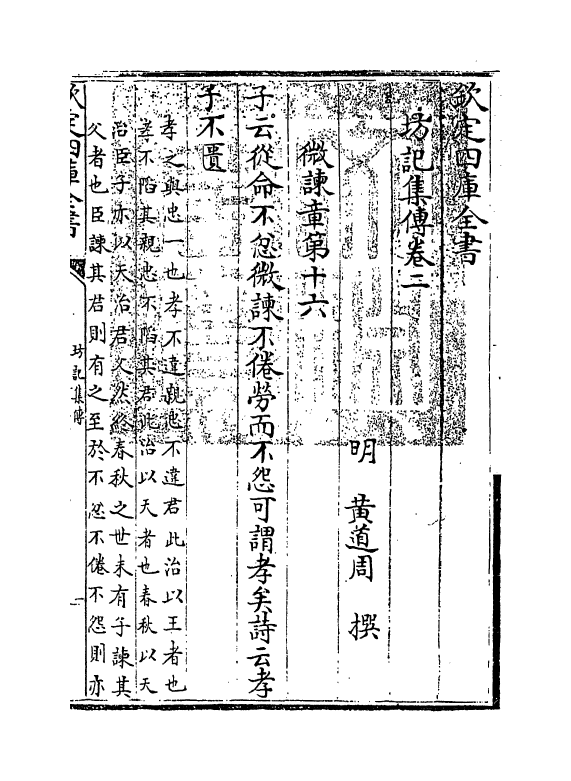 欽定四庫全書
坊記集傳卷二
明 黄道周 撰
微諫章第十六
子云從命不忿微諫不倦勞而不怨可謂孝矣詩云孝
子不匱
孝之與忠一也孝不違親忠不違君此治以王者也
孝不陷其親忠不陷其君此治以天者也春秋以天
治臣子亦以天治君父然終春秋之世未有子諫其
父者也臣諫其君則有之至於不忿不倦不怨則亦
欽定四庫全書
坊記集傳
一